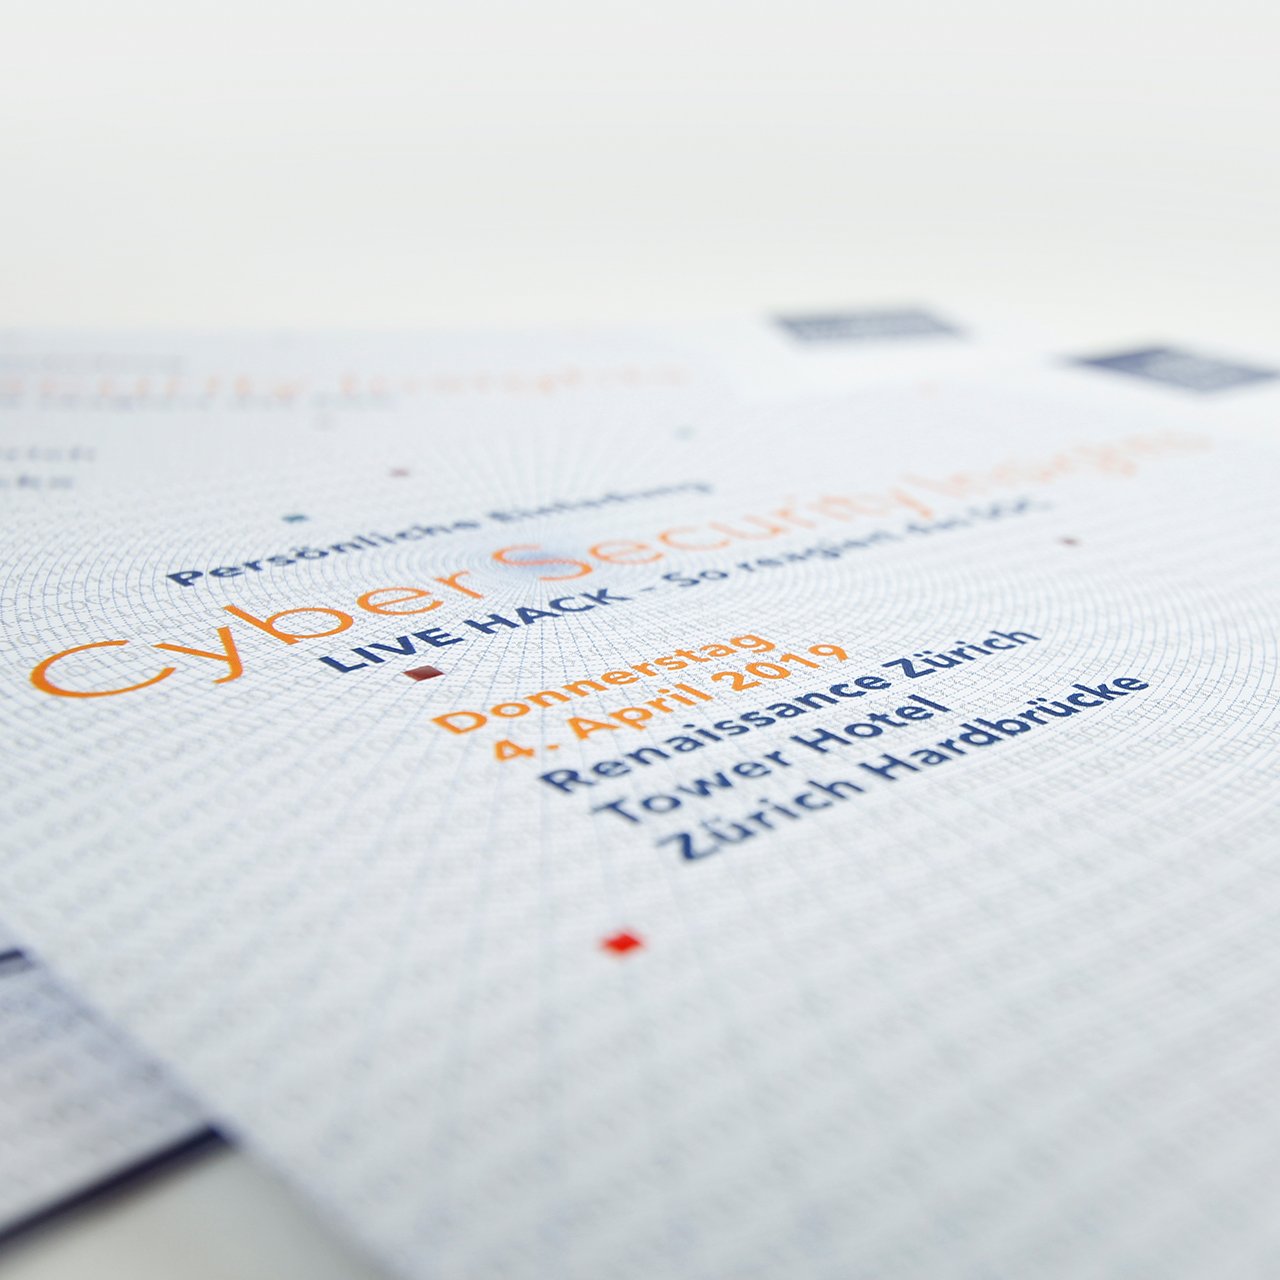 Persönliche Einladung
Cyber Security Insights
LIVE HACK - So reagiert das SOC
Donnerstag
4. April 2019
Renaissance Zürich
Tower Hotel
Zürich Hardbrücke